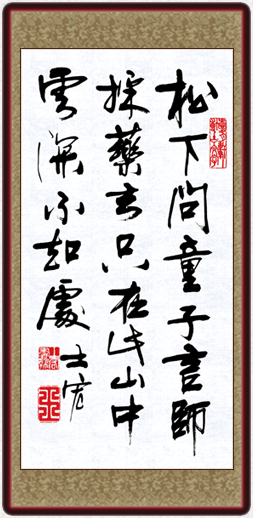 松下問童子言師
採藥去只在此山中
雲深不知處
士宏